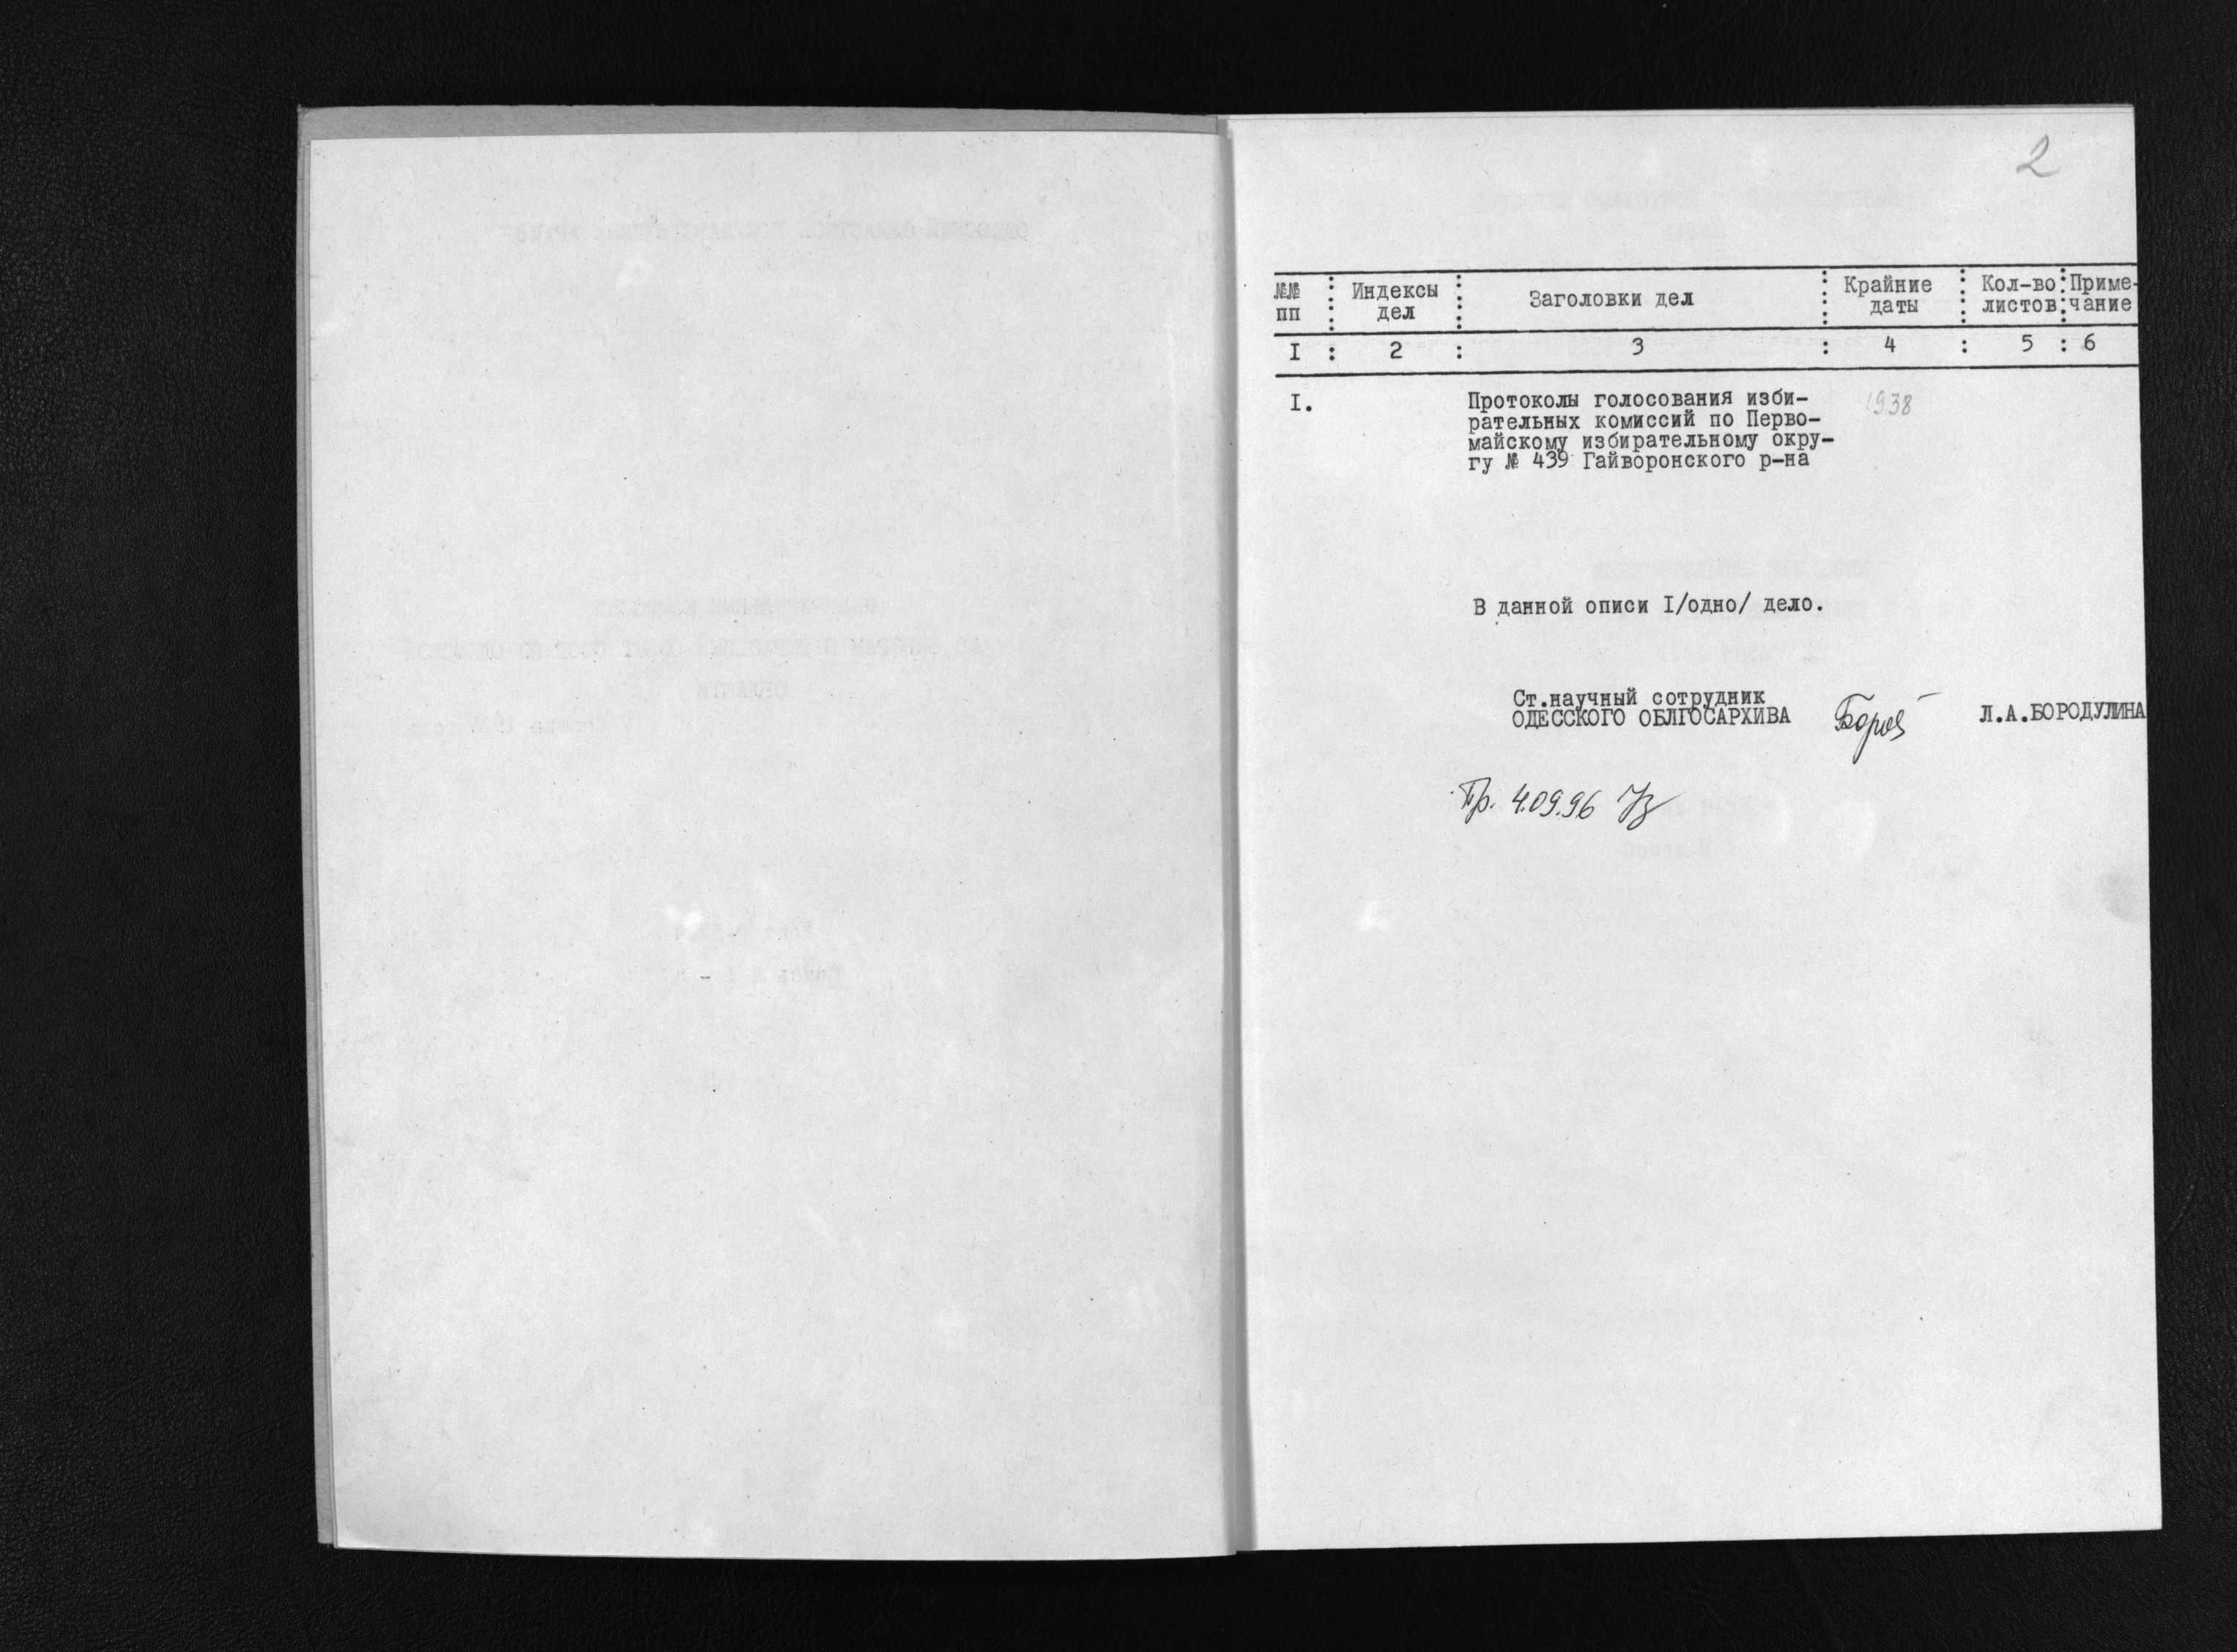 2
№№ : Индексы : Заголовки дел : Крайние : Кол-во : Приме-
пп : дел : даты : листов : чание
I : 2 : 3 : 4 : 5 : 6
I. Протоколы голосования изби- 1938
рательных комиссий по Перво-
майскому избирательному окру-
гу № 439 Гайворонского р-на
В данной описи I/одно/ дело.
Ст.научный сотрудник
ОДЕССКОГО ОБЛГОСАРХИВА Л.А.БОРОДУЛИНА
Пр. 4.09.96